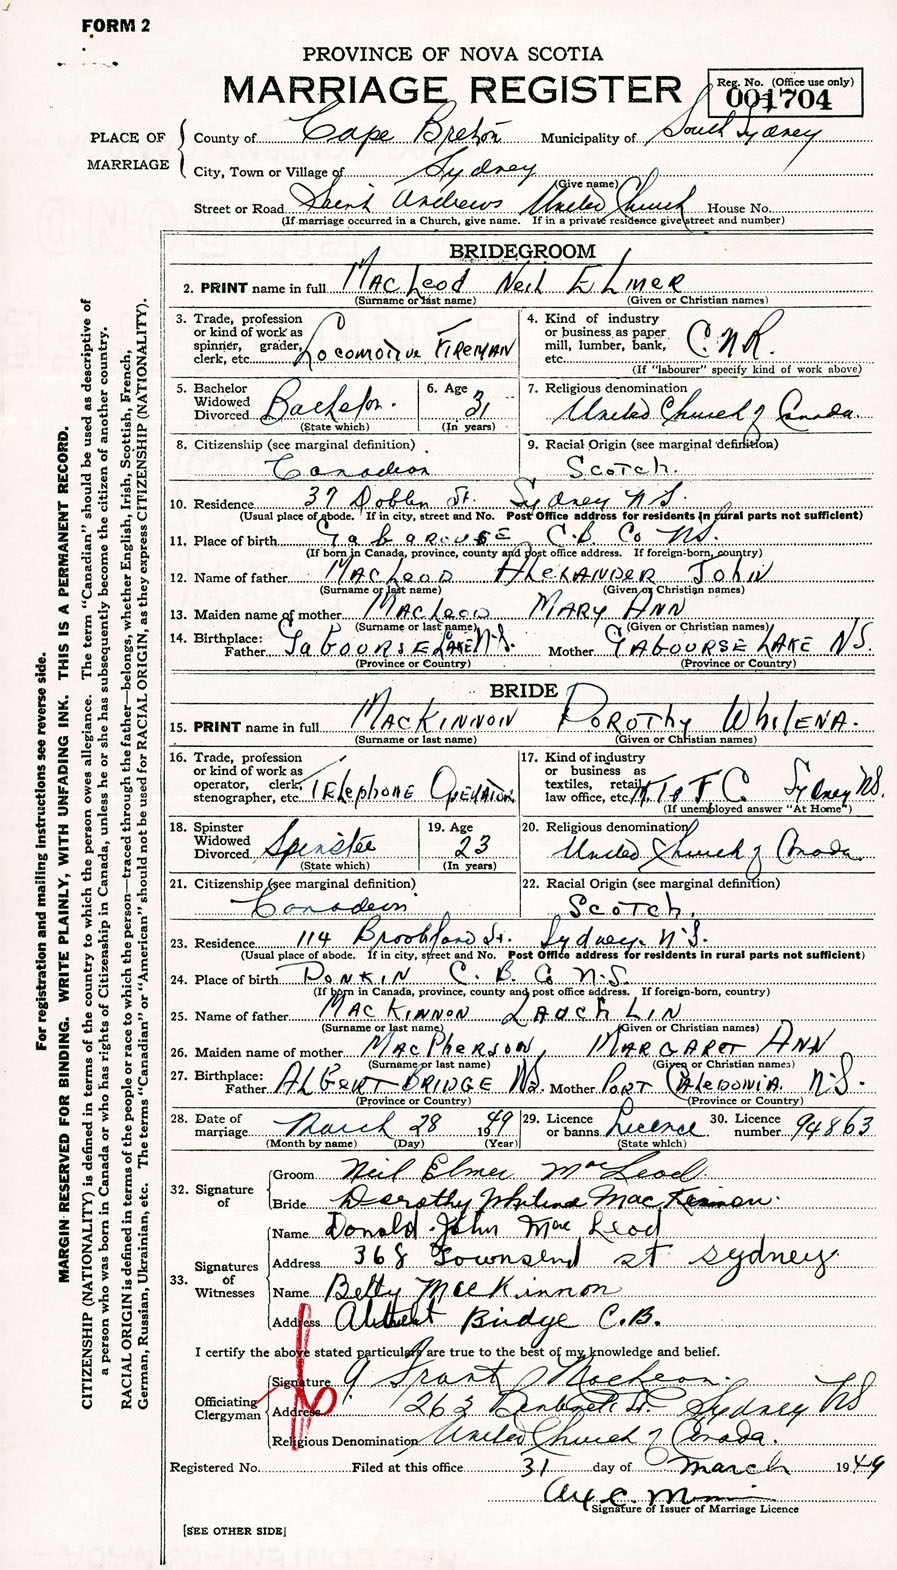 FORM 2
PROVINCE OF NOVA SCOTIA
MARRIAGE REGISTER
Reg. No. (Office use only)
001704
PLACE OF MARRIAGE
County of Cape Breton Municipality of South Sydney
City, Town or Village of Sydney
(Give name)
Street or Road Saint Andrews United Church House No.
(If marriage occurred in a Church, give name. If in a private residence give street and number)
BRIDEGROOM
2. PRINT name in full MacLeod Neil Elmer
(Surname or last name) (Given or Christian names)
3. Trade, profession or kind of work as spinner, grader, clerk, etc. Locomotive Fireman
4. Kind of industry or business as paper mill, lumber, bank, etc. C.N.R.
(If "labourer" specify kind of work above)
5. Bachelor Widowed Divorced Bachelor.
(State which)
6. Age 31
(In years)
7. Religious denomination
United Church of Canada.
8. Citizenship (see marginal definition)
Canadian
9. Racial Origin (see marginal definition)
Scotch.
10. Residence 37 St. Sydney N.S.
(Usual place of abode. If in city, street and No. Post Office address for residents in rural parts not sufficient)
11. Place of birth Gabarouse C.B. Co N.S.
(If born in Canada, province, county and post office address. If foreign-born, country)
12. Name of father MacLeod Alexander John
(Surname or last name) (Given or Christian names)
13. Maiden name of mother MacLeod Mary Ann
(Surname or last name) (Given or Christian names)
14. Birthplace: Father Gabourse Lake N.S. Mother Gabourse Lake N.S.
(Province or Country) (Province or Country)
BRIDE
15. PRINT name in full MacKinnon Dorothy Whilena.
(Surname or last name) (Given or Christian names)
16. Trade, profession or kind of work as operator, clerk, stenographer, etc. Telephone Operator
17. Kind of industry or business as textiles, retail, law office, etc. M.T.&T.C. Sydney N.S.
(If unemployed answer "At Home")
18. Spinster Widowed Divorced Spinster
(State which)
19. Age 23
(In years)
20. Religious denomination
United Church of Canada.
21. Citizenship (see marginal definition)
Canadian
22. Racial Origin (see marginal definition)
Scotch.
23. Residence 114 St. Sydney. N.S.
(Usual place of abode. If in city, street and No. Post Office address for residents in rural parts not sufficient)
24. Place of birth Donkin C.B. Co N.S.
(If born in Canada, province, county and post office address. If foreign-born, country)
25. Name of father MacKinnon Lauchlin
(Surname or last name) (Given or Christian names)
26. Maiden name of mother MacPherson, Margaret Ann
(Surname or last name) (Given or Christian names)
27. Birthplace: Father Albert Bridge N.S. Mother Port Caledonia N.S.
(Province or Country) (Province or Country)
28. Date of marriage March 28 1949
(Month by name) (Day) (Year)
29. Licence or banns Licence
(State which)
30. Licence number 94863
32. Signature of
Groom Neil Elmer MacLeod.
Bride Dorothy Whilena MacKinnon.
33. Signatures of Witnesses
Name Donald John MacLeod
Address 368 Townsend st Sydney
Name Betty MacKinnon
Address Albert Bridge C.B.
I certify the above stated particulars are true to the best of my knowledge and belief.
Officiating Clergyman
Signature Grant
Address 263 St. Sydney NS
Religious Denomination United Church of Canada.
Registered No. Filed at this office 31 day of March 1949
Signature of Issuer of Marriage Licence
[SEE OTHER SIDE]
For registration and mailing instructions see reverse side.
MARGIN RESERVED FOR BINDING. WRITE PLAINLY, WITH UNFADING INK. THIS IS A PERMANENT RECORD.
CITIZENSHIP (NATIONALITY) is defined in terms of the country to which the person owes allegiance. The term "Canadian" should be used as descriptive of
a person who was born in Canada or who has rights of Citizenship in Canada, unless he or she has subsequently become the citizen of another country.
RACIAL ORIGIN is defined in terms of the people or race to which the person—traced through the father—belongs, whether English, Irish, Scottish, French,
German, Russian, Ukrainian, etc. The terms "Canadian" or "American" should not be used for RACIAL ORIGIN, as they express CITIZENSHIP (NATIONALITY).